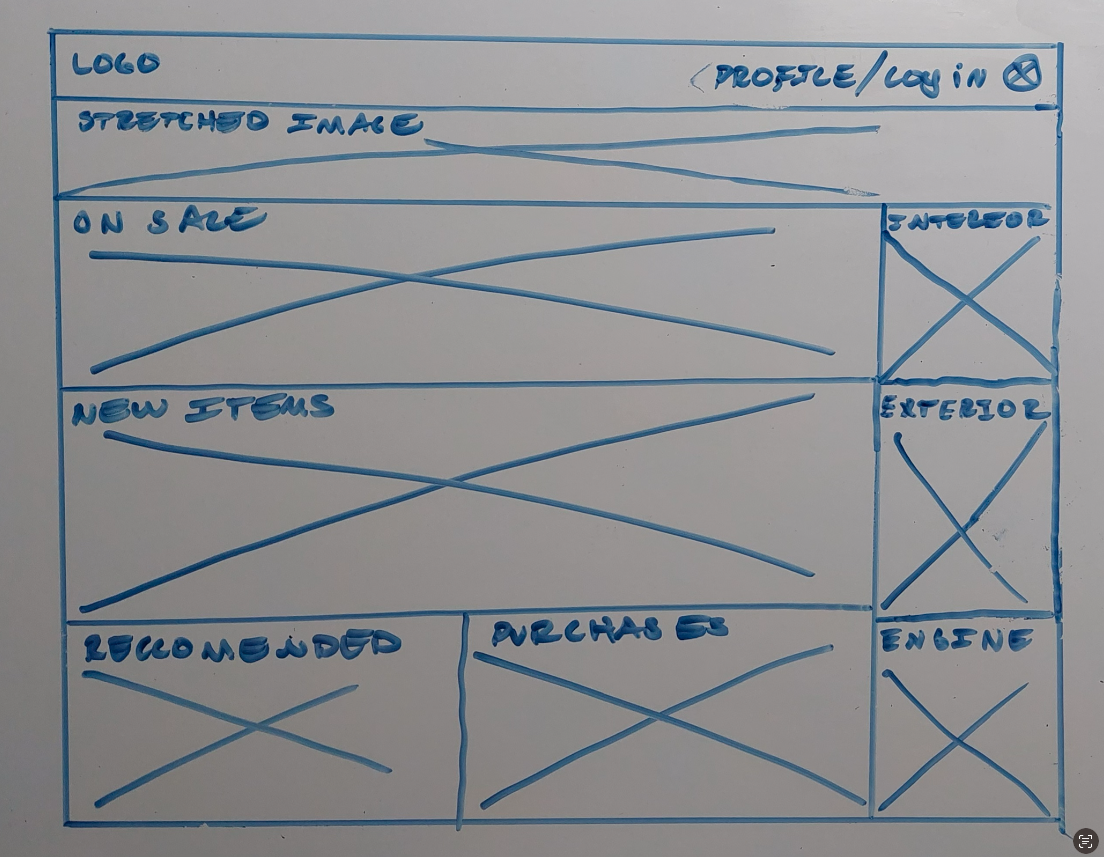 LOGO
(PROFILE/Log in
STRETCHED IMAGE
ON SALE
INTERIOR
NEW ITEMS
EXTERIOR
RECCOMENDED
PURCHASES
ENGINE